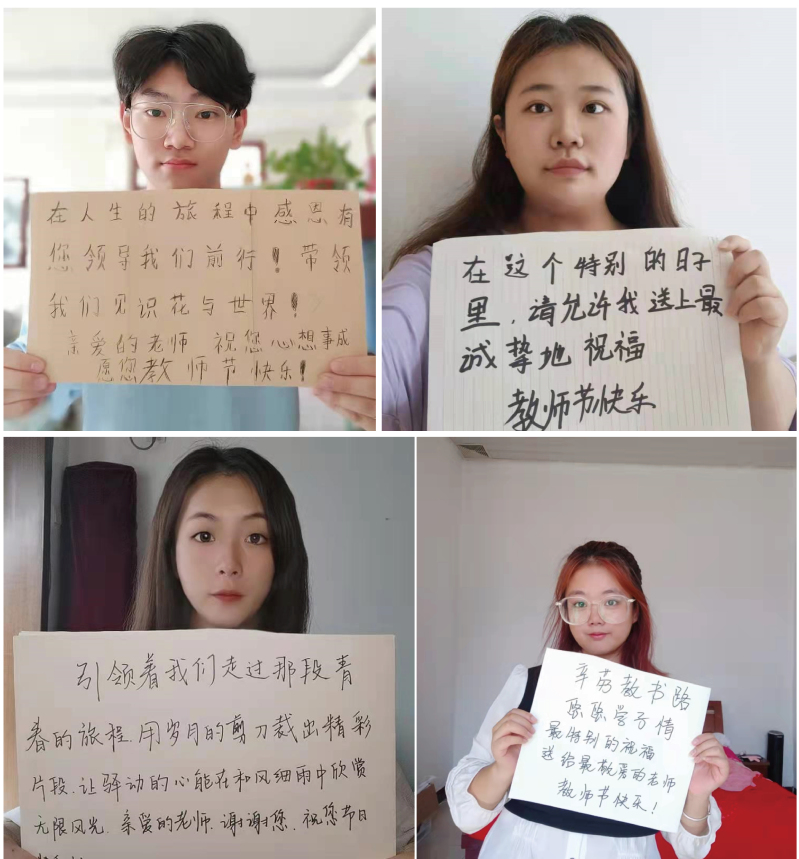 在人生的旅程中感恩有
您领导我们前行！带领
我们见识花与世界！
亲爱的老师 祝您心想事成
愿您教师节快乐！
在这个特别的日子
里，请允许我送上最
诚挚地祝福
教师节快乐
引领着我们走过那段青
春的旅程.用岁月的剪刀裁出精彩
片段.让驿动的心能在和风细雨中欣赏
无限风光.亲爱的老师.谢谢您.祝您节日
辛劳教书路
学子情
最特别的祝福
送给最敬爱的老师
教师节快乐！